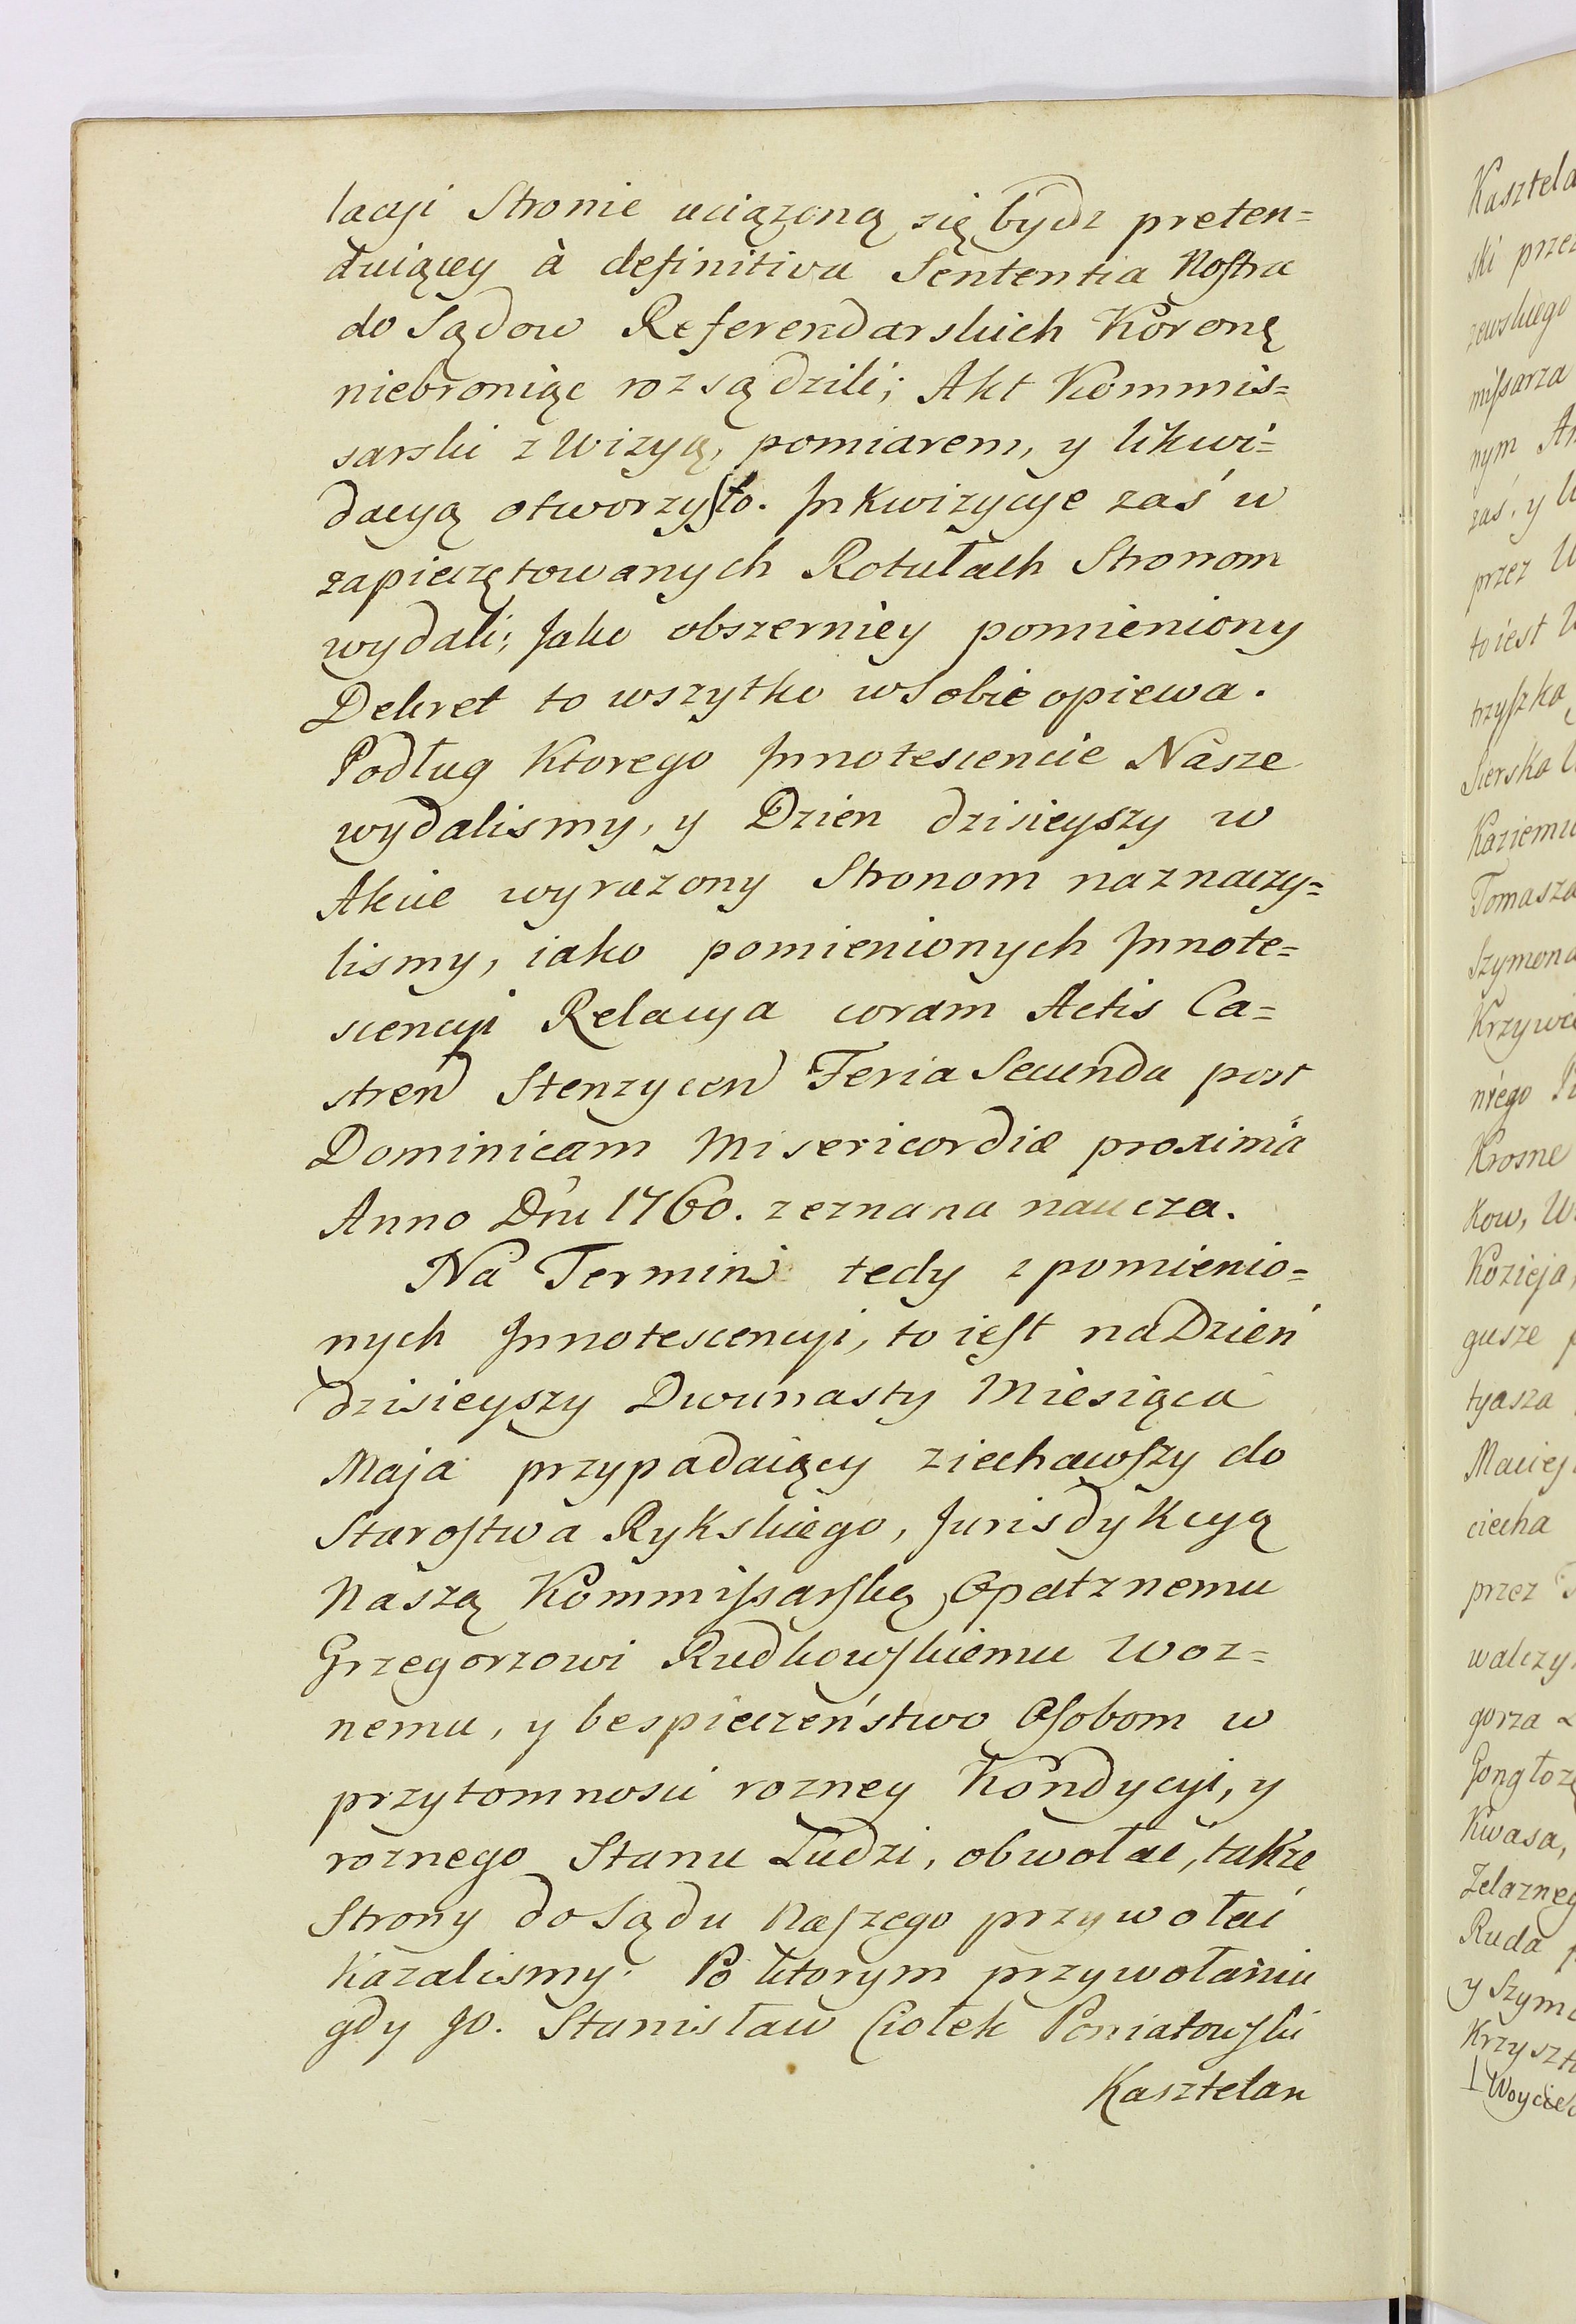 lacyi Stronie uciązoną się bydz preten=
duiącey à definitiva Sententia Nostra
do Sądow Referendarskich Koronę
niebroniąc rozsądzili; Akt Kommis=
sarski z Wizyą, pomiarem, y likwi=
dacyą otworzysto. Inkwizycye zaś w
zapieczętowanych Rotułach Stronom
wydali; Jako obszerniey pomieniony
Dekret to wszytko w Sobie opiewa.
Podług Ktorego Innotescencie Nasze
wydalismy, y Dzien dzisieyszy w
Akcie wyrazony Stronom naznaczy=
lismy, iako pomienionych Innote=
scencyi Relacya coram Actis Ca=
stren Stenzycen Feria Secunda post
Dominicam Misericordiæ proxima
Anno Dni 1760. zeznana naucza.
Na Termin tedy z pomienio=
nych Innotescencyi, to iest na Dzień
dzisieyszy Dwunasty Miesiąca
Maja przypadaiący ziechawszy do
Starostwa Rykskiego, Jurisdykcyą
Naszą Kommissarską Opatznemu
Grzegorzowi Rudkowskiemu Woz=
nemu, y bespieczeństwo Osobom w
przytomnosci rozney Kondycyi, y
roznego Stanu Ludzi, obwołać, takze
Strony do Sądu Naszego przywołać
Kazalismy. Po ktorym przywołaniu
gdy Jo. Stanisław Ciołek Poniatowski
Kasztelan
Kasztela
ski prze
zewskiego
missarza
nym
zaś, y
przez
to iest
trzyszka
Sierska
Kaziemi
Tomasza
Szymona
Krzywic
niego
Krosne
kow,
Kozieja,
gusze
tyasza
Maciej
ciecha
przez
walczy
gorza
Kwasa,
Zelazneg
Ruda
y Szymo
Krzyszto
Woyciec